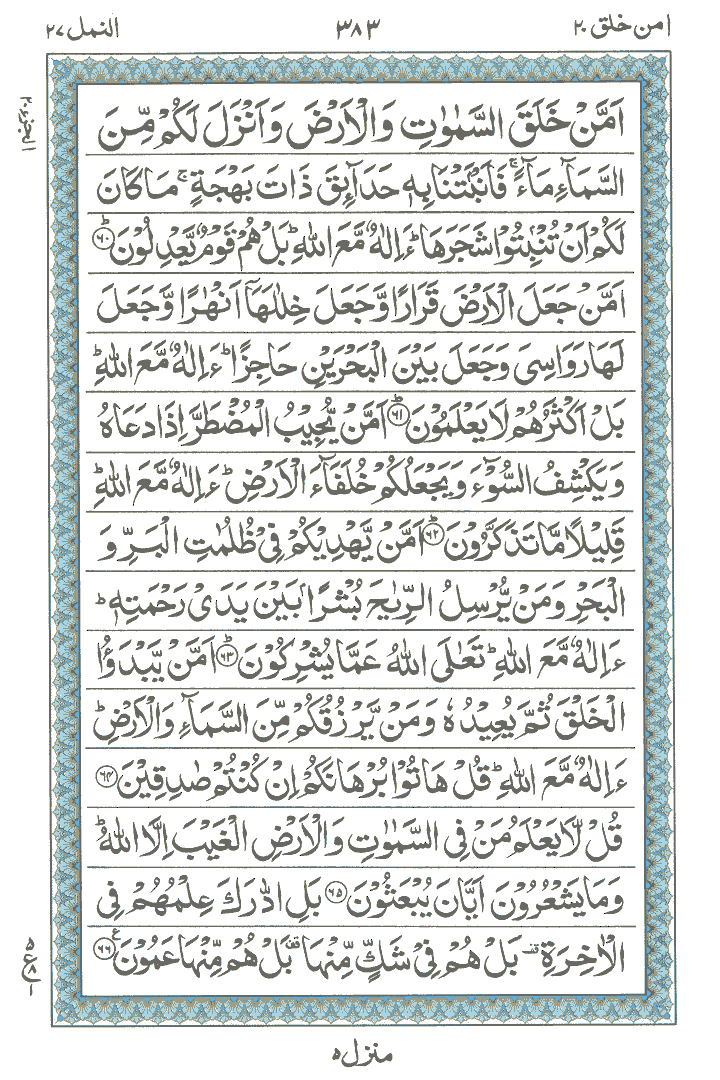 امن خلق ۲۰
۳۸۳
النمل ۲۷
الجزء ۲۰
اَمَّنْ خَلَقَ السَّمٰوٰتِ وَالْاَرْضَ وَاَنْزَلَ لَكُمْ مِّنَ
السَّمَآءِ مَآءً ۚ فَاَنْۢبَتْنَا بِهٖ حَدَآئِقَ ذَاتَ بَهْجَةٍ ۚ مَا كَانَ
لَكُمْ اَنْ تُنْۢبِتُوْا شَجَرَهَا ؕ ءَاِلٰهٌ مَّعَ اللّٰهِ ؕ بَلْ هُمْ قَوْمٌ يَّعْدِلُوْنَ ؕ ۶۰
اَمَّنْ جَعَلَ الْاَرْضَ قَرَارًا وَّجَعَلَ خِلٰلَهَاۤ اَنْهٰرًا وَّجَعَلَ
لَهَا رَوَاسِىَ وَجَعَلَ بَيْنَ الْبَحْرَيْنِ حَاجِزًا ؕ ءَاِلٰهٌ مَّعَ اللّٰهِ ؕ
بَلْ اَكْثَرُهُمْ لَا يَعْلَمُوْنَ ؕ ۶۱ اَمَّنْ يُّجِيْبُ الْمُضْطَرَّ اِذَا دَعَاهُ
وَيَكْشِفُ السُّوْٓءَ وَيَجْعَلُكُمْ خُلَفَآءَ الْاَرْضِ ؕ ءَاِلٰهٌ مَّعَ اللّٰهِ ؕ
قَلِيْلًا مَّا تَذَكَّرُوْنَ ؕ ۶۲ اَمَّنْ يَّهْدِيْكُمْ فِىْ ظُلُمٰتِ الْبَرِّ وَ
الْبَحْرِ وَمَنْ يُّرْسِلُ الرِّيٰحَ بُشْرًۢا بَيْنَ يَدَىْ رَحْمَتِهٖ ؕ
ءَاِلٰهٌ مَّعَ اللّٰهِ ؕ تَعٰلَى اللّٰهُ عَمَّا يُشْرِكُوْنَ ؕ ۶۳ اَمَّنْ يَّبْدَؤُا
الْخَلْقَ ثُمَّ يُعِيْدُهٗ وَمَنْ يَّرْزُقُكُمْ مِّنَ السَّمَآءِ وَالْاَرْضِ ؕ
ءَاِلٰهٌ مَّعَ اللّٰهِ ؕ قُلْ هَاتُوْا بُرْهَانَكُمْ اِنْ كُنْتُمْ صٰدِقِيْنَ ۶۴
قُلْ لَّا يَعْلَمُ مَنْ فِى السَّمٰوٰتِ وَالْاَرْضِ الْغَيْبَ اِلَّا اللّٰهُ ؕ
وَمَا يَشْعُرُوْنَ اَيَّانَ يُبْعَثُوْنَ ۶۵ بَلِ ادّٰرَكَ عِلْمُهُمْ فِى
الْاٰخِرَةِ قف بَلْ هُمْ فِىْ شَكٍّ مِّنْهَا قف بَلْ هُمْ مِّنْهَا عَمُوْنَ ع ۶۶
۵
ع ۸
۱
منزل ۵